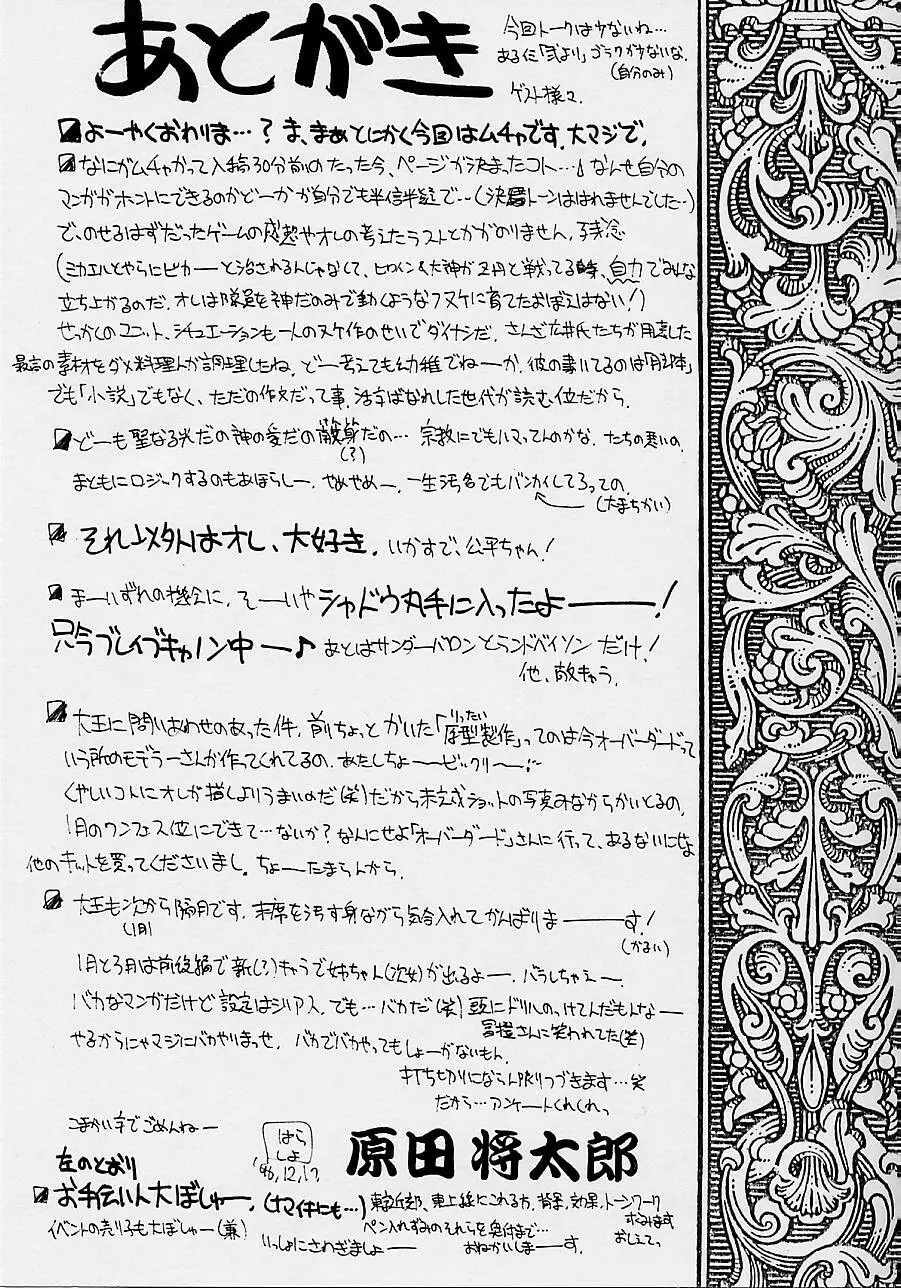 あとがき
今回トークは少ないね…
あるに「弐より」ゴラクがすないな.
(自分のみ)
ゲスト様々.
よーやくおわりま…? ま、まぁとにかく今回はムチャです.大マジで.
なにがムチャかって入稿30分前のたった今、ページが決まったコト…♪なんせ自分の
マンガがホントにできるのかどーかが自分でも半信半疑で…(決局トーンははれませんでした…)
で、のせるはずだったゲームの感想やオレの考えたラストとかがのりません.残念
(ミカエルとやらにピカーーと治されるんじゃなくて、ヒロイン&大神がエ円と戦ってる時、自力でみんな
立ち上がるのだ.オレは隊員を神だのみで動くようなフヌケに育てたおぼえはない!)
せっかくのユニット、シチュエーションも一人のヌケ作のせいでダイナシだ. さんざ広井氏たちが用意した
最高の素材をダメ料理人が調理したね. どー考えても幼稚でねーか. 彼の書いてるのは「脚本」
でも「小説」でもなく、ただの作文だって事.活字ばなれした世代が読む位だから.
どーも聖なる光だの神の愛だの敵算だの… 宗教にでもハマってんのかな.たちの悪いの.
(?)
まともにロジックするのもあほらしー. やめやめー. 一生汚名でもバンカイしてろっての.
(大まちがい)
それ以外はオレ、大好き. いかすで、公平ちゃん!
まーいずれの機会に. そーいやシャドウ丸手に入ったよーーー!
只今ブレイブキャノン中ー♪ あとはサンダーバロンとランドバイソンだけ!
他、敵きゃう.
大王に問いあわせのあった件. 前ちょっとかいた「原型製作」ってのは今オーバーダードって
りったい
いう所のモデラーさんが作ってくれてるの. あたしちょーービックリーー
くやしいコトにオレが描くよりうまいのだ(笑)だから未完成ショットの写真みながらかいとるの.
1月のワンフェス位にできて…ないか?なんにせよ「オーバーダード」さんに行って、あるないにせよ
他のキットを買ってくださいまし. ちょーーたまらんから.
大王も次から隔月です. 末席を汚す身ながら気合入れてがんばりまーーーす!
(1月)
(かるい)
1月と3月は前後編で新(?)キャラで姉ちゃん(次女)が出るよーー. バラしちゃえー
バカなマンガだけど設定はシリアス. でも…バカだ(笑)頭にドリルのっけてんだもんなー
冨樫さんに笑われてた(笑)
やるからにゃマジにバカやりまっせ. バカでバカやってもしょーがないもん.
打ち切りにならん限りつづきます…笑
だから…アンケートくれくれっ
こまかい字でごめんねー
はら
しょ
'96.12.17
原田 将太郎
左のとおり
お手伝い人大ぼしゅー. (ナマイキにも…) 東京近郊、東上線にこれる方. 背景、効果、トーンワーク
イベントの売り子も大ぼしゅー(兼)
ペン入れずみのそれらを受付まで…
するみます
おしえてっ
いっしょにさわぎましょーー
おねがいしまーーす.